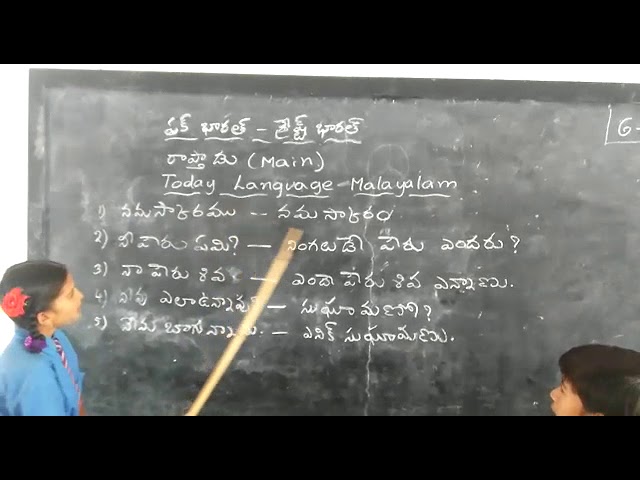 ఏక్ భారత్ - శ్రేష్ఠ్ భారత్
G-
రాప్తాడు (Main)
Today Language Malayalam
1) నమస్కారము -- నమస్కారం
2) నీ పేరు ఏమి? - నింగలుడే పేరు ఎందరు?
3) నా పేరు శివ - ఎండె పేరు శివ ఎన్నాణు.
4) నీవు ఎలా ఉన్నావు? - సుఖమాణో?
5) నేను బాగున్నాను. - ఎనిక్ సుఖమాణు.